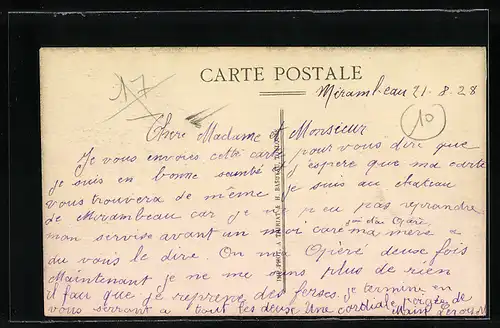 17
CARTE POSTALE
Mirambeau 21-8-28
10
Chere Madame et Monsieur
Je vous envoies cette carte pour vous dire que
je suis en bonne santé j'espere que ma carte
vous trouvera de même je suis au chateau
de Mirambeau car je n'e peu pas reprendre
mon servise avant un moi care ma mère a
du vous le dire. On ma Opéré deuse fois
Maintenant je ne me sans plus de rien
il fau que je reprene des forses. je termine en
vous serrant a tout les deuse Une cordiale poigée de
Main